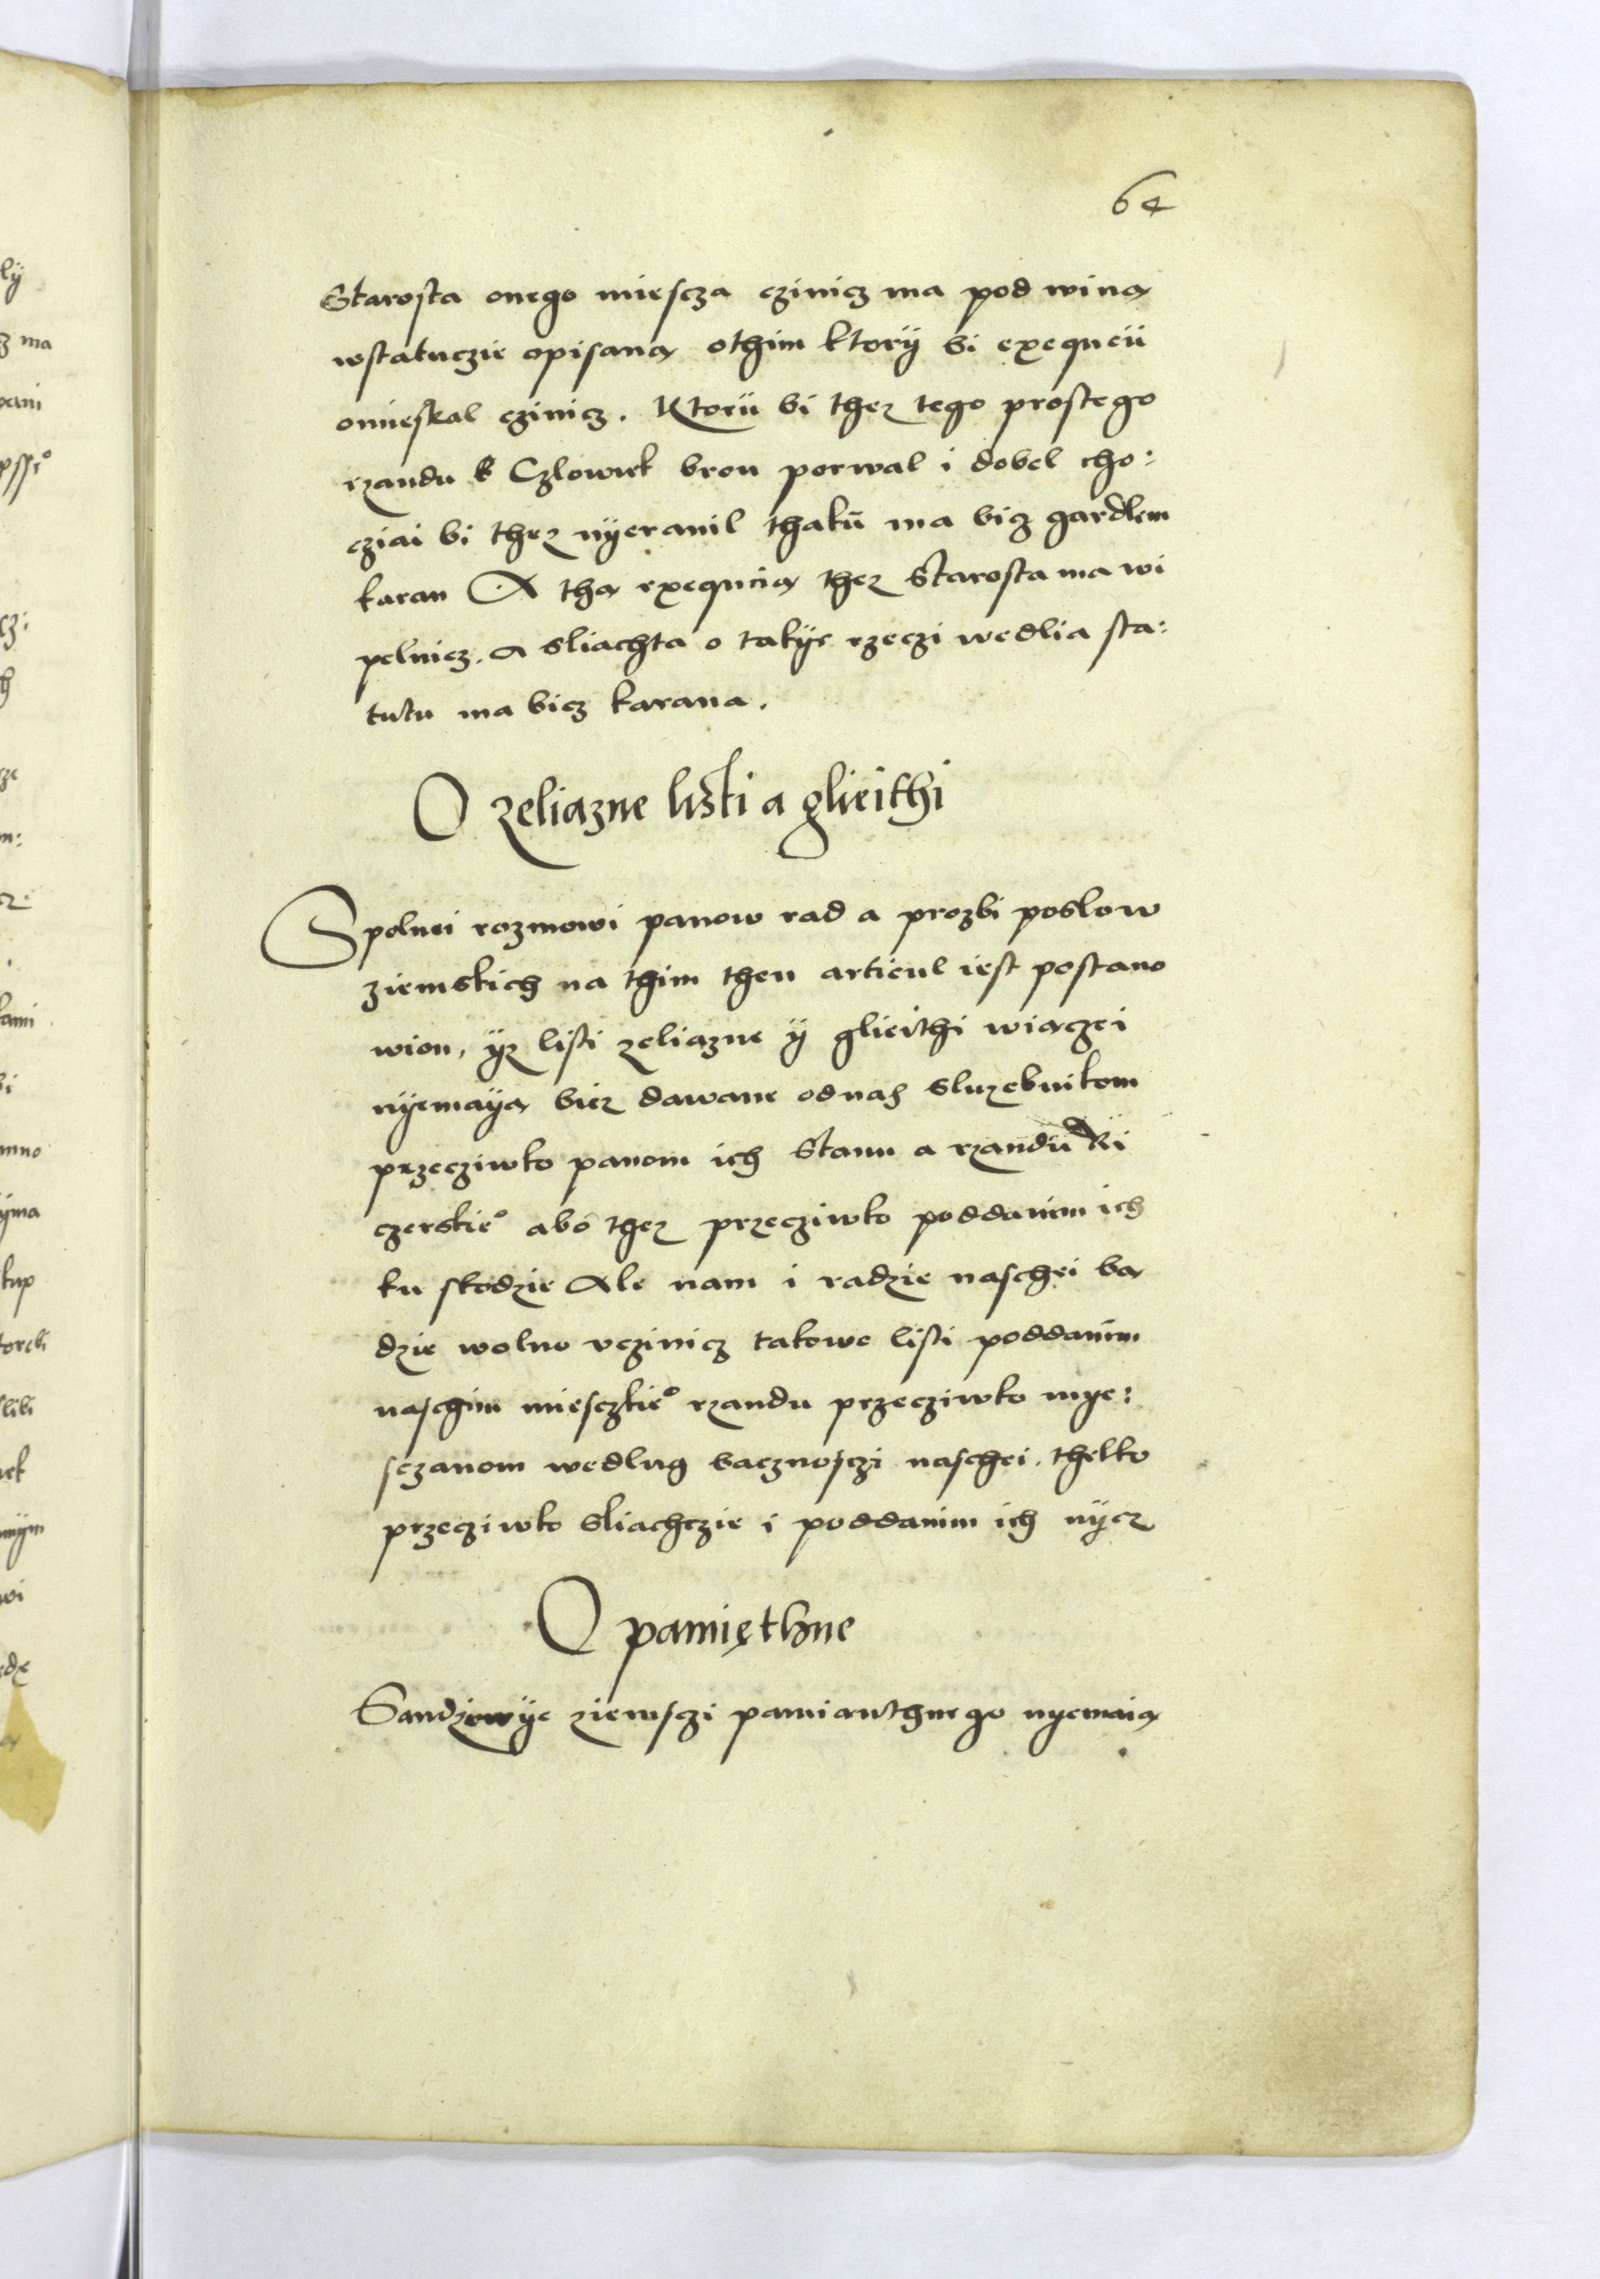 64
Starosta onego miescza czinicz ma pod winą
wstatuczie opisaną othim ktorÿ bi exequcii
omieskal czinicz. Ktorii bi thez tego prostego
rzandu Czlowiek bron porwal i dobel cho:
cziai bi thez nÿeranil thakii ma bicz gardlem
karan A thą exequcią thez Starosta ma wi
pelnicz. a sliachta o takÿe rzeczi wedlia sta:
tutu ma bicz karana.
O zeliazne listi a glieithi
Spolnei rozmowi panow rad a prozbi poslow
ziemskich na thim then articul iest postano
wion, ÿz listi zeliazne ÿ glieithi wiączei
nÿemaÿą bicz dawane odnas sluzebnikom
przecziwko panom ich stanu a rzandu Ri
czerskie° abo thez przecziwko poddanim ich
ku skodzie Ale nam i radzie naschei bą
dzie wolno uczinicz takowe listi poddanim
naschim miesczkie° rzandu przecziwko mye:
sczanom wedlug bacznosczi naschei. thelko
przecziwko sliachczie i poddanim ich nÿcz
O pamięthne
Sandzowÿe ziemsczi pamianthnego nyemaią
lÿ
z ma
pani
cz:
h
ze
m:
z.
kami
bi
mno
ÿma
kup
torębi
slibi
iek
mÿm
wi